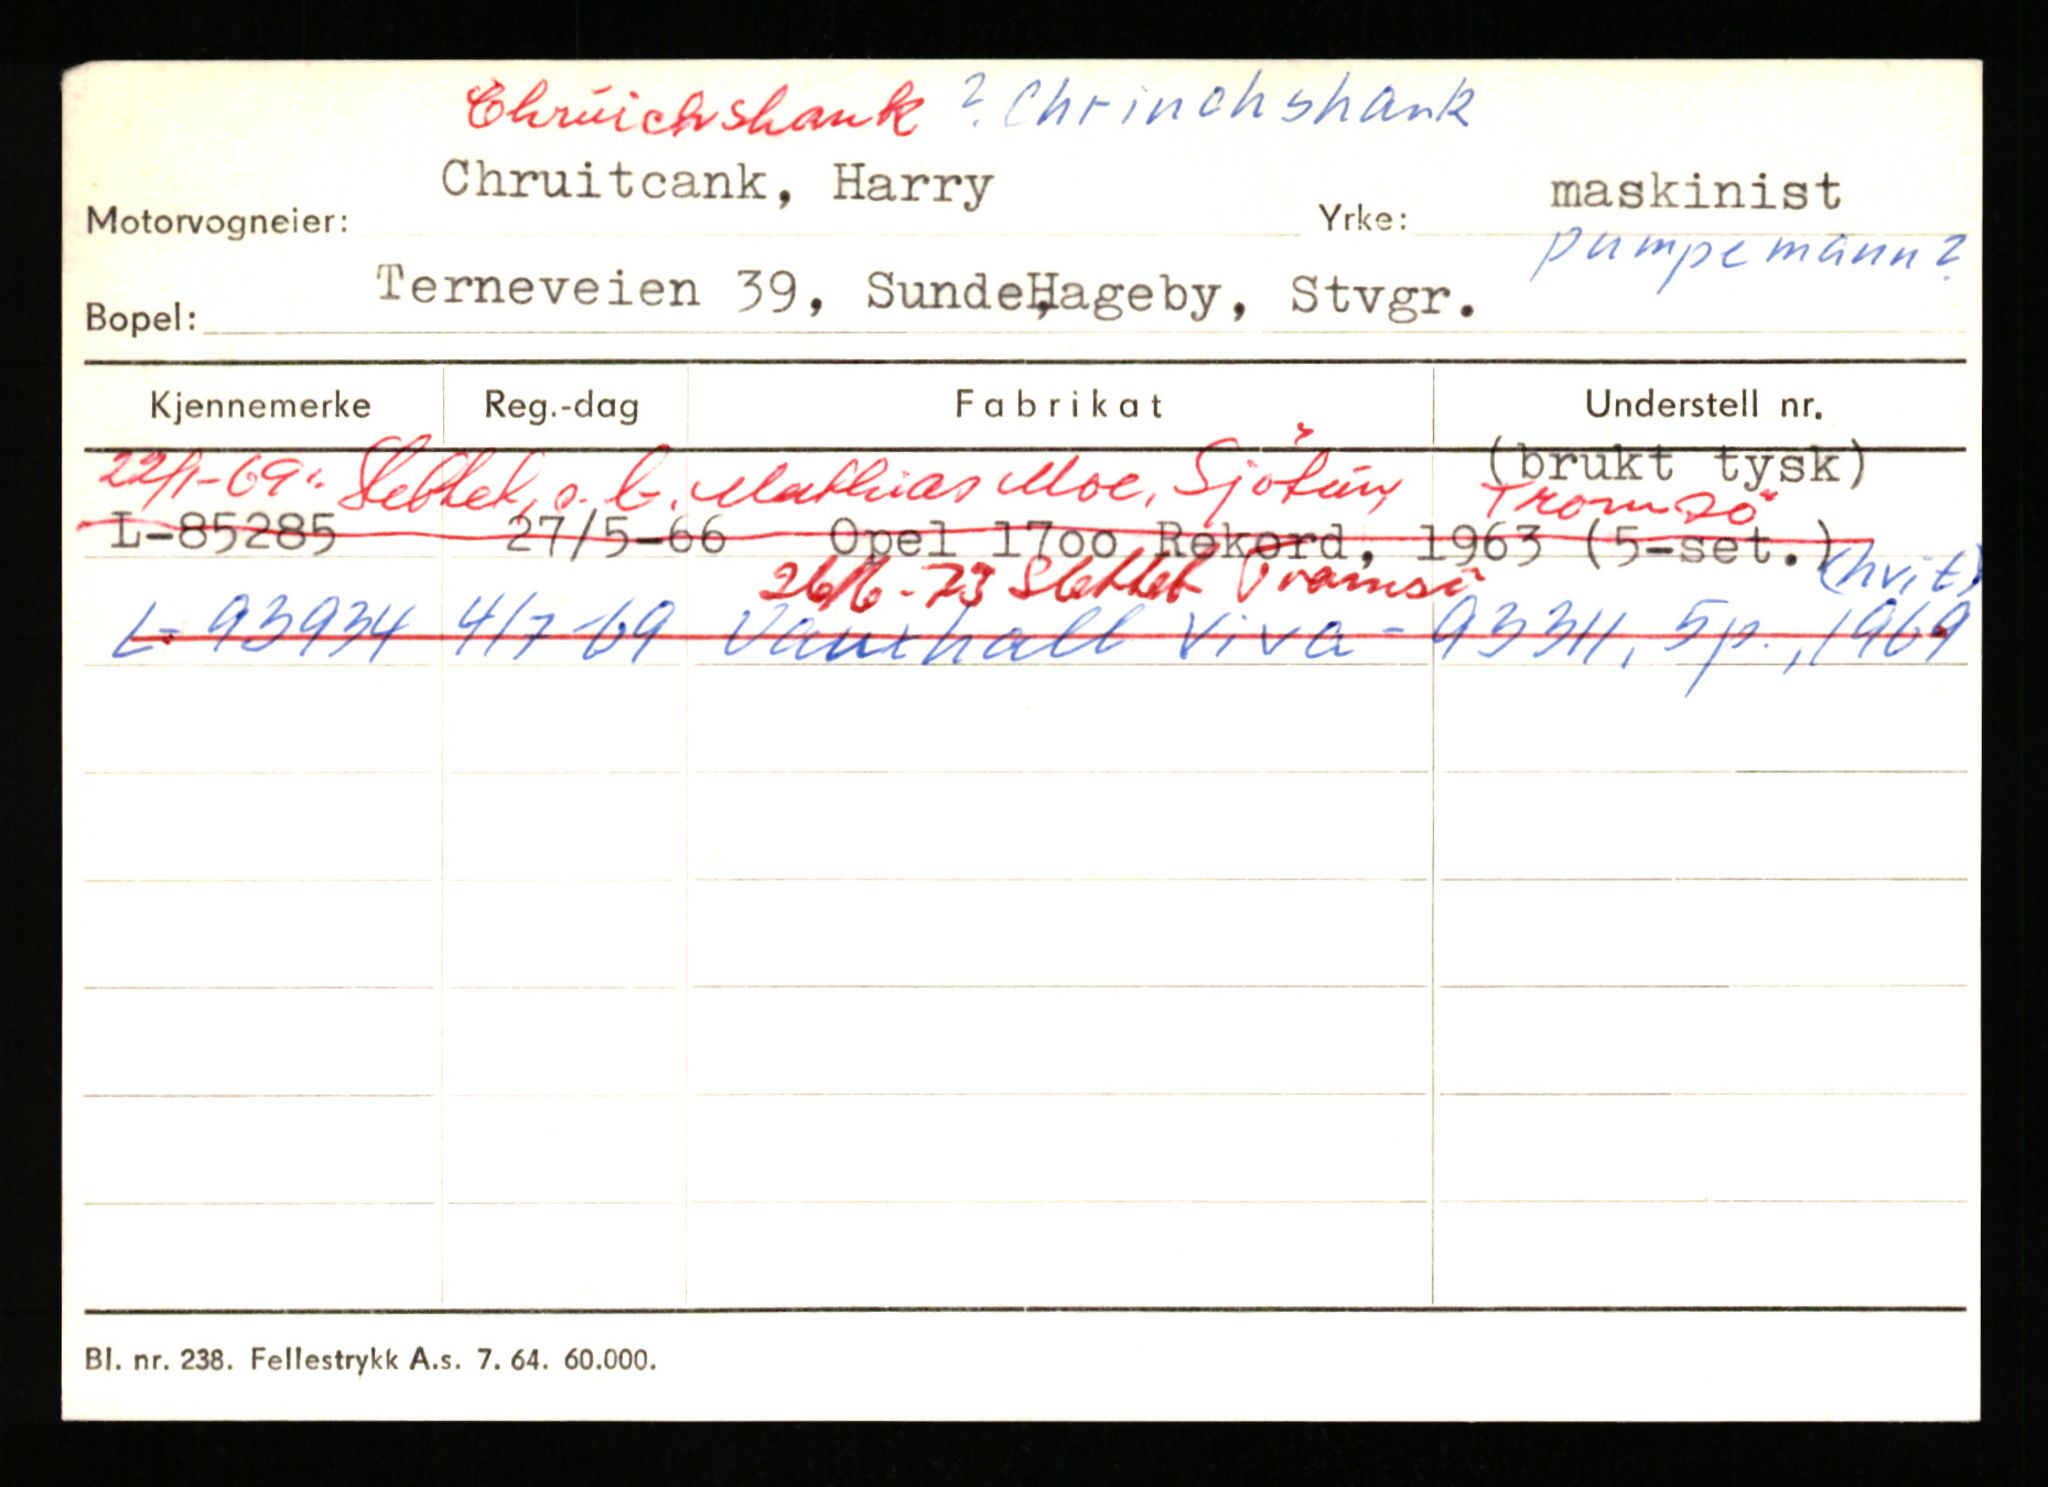 Chruichshank ? Chrinchshank
Chruitcank, Harry
maskinist
Motorvogneier:
Yrke:
pumpemann?
Terneveien 39, Sunde,Hageby, Stvgr.
Bopel:
Kjennemerke Reg.-dag Fabrikat Understell nr.
(brukt tysk)
22/1-69: Slettet, o. t. Mathias Moe, Sjøtun, Tromsö
L-85285 27/5-66 Opel 17oo Rekord, 1963 (5-set.)
(hvit)
26/6-73 Slettet Tromsö
L-93934 4/7-69 Vauxhall Viva - 93311, 5p., 1969
Bl. nr. 238. Fellestrykk A.s. 7. 64. 60.000.